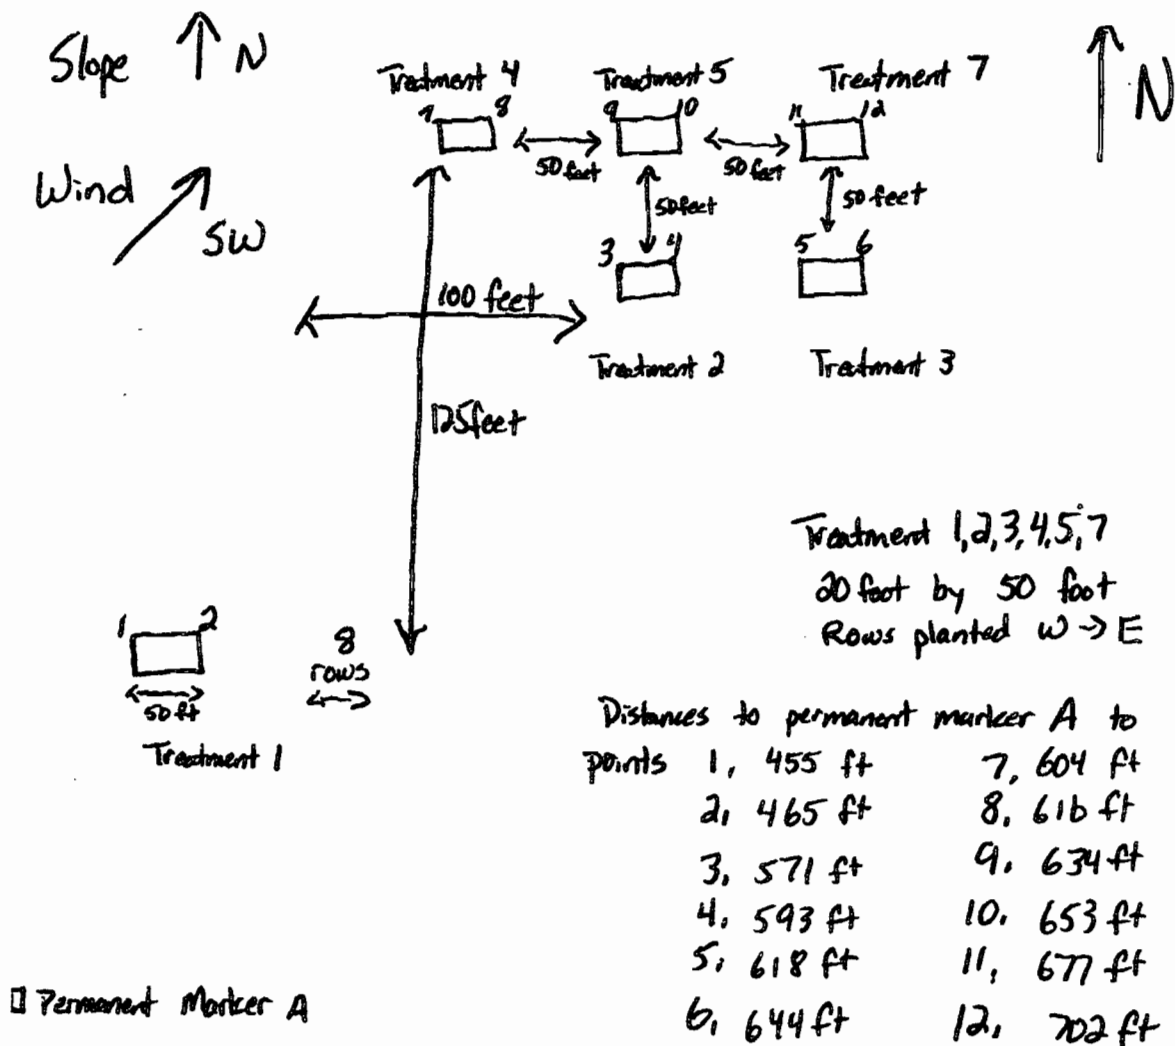 Slope N
N
Treatment 4
Treatment 5
Treatment 7
7 8
9 10
11 12
50 feet
50 feet
Wind
SW
50 feet
50 feet
3 4
5 6
100 feet
Treatment 2
Treatment 3
125 feet
Treatment 1,2,3,4,5,7
20 foot by 50 foot
Rows planted W → E
1 2
8
rows
50 ft
Treatment 1
Distances to permanent marker A to
points 1, 455 ft
2, 465 ft
3, 571 ft
4. 593 ft
5, 618 ft
6, 644 ft
7, 604 ft
8. 616 ft
9. 634 ft
10. 653 ft
11, 677 ft
12, 702 ft
Permanent Marker A